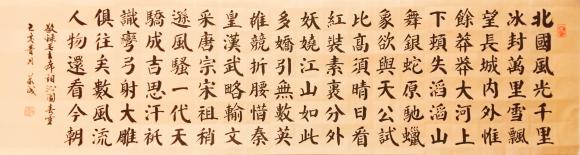 北國風光千里
冰封萬里雪飄
望長城內外惟
餘莽莽大河上
下頓失滔滔山
舞銀蛇原馳蠟
象欲與天公試
比高須晴日看
紅裝素裹分外
妖嬈江山如此
多嬌引無數英
雄競折腰惜秦
皇漢武略輸文
采唐宗宋祖稍
遜風騷一代天
驕成吉思汗祇
識彎弓射大雕
俱往矣數風流
人物還看今朝
敬錄毛主席詞沁園春雪
己亥